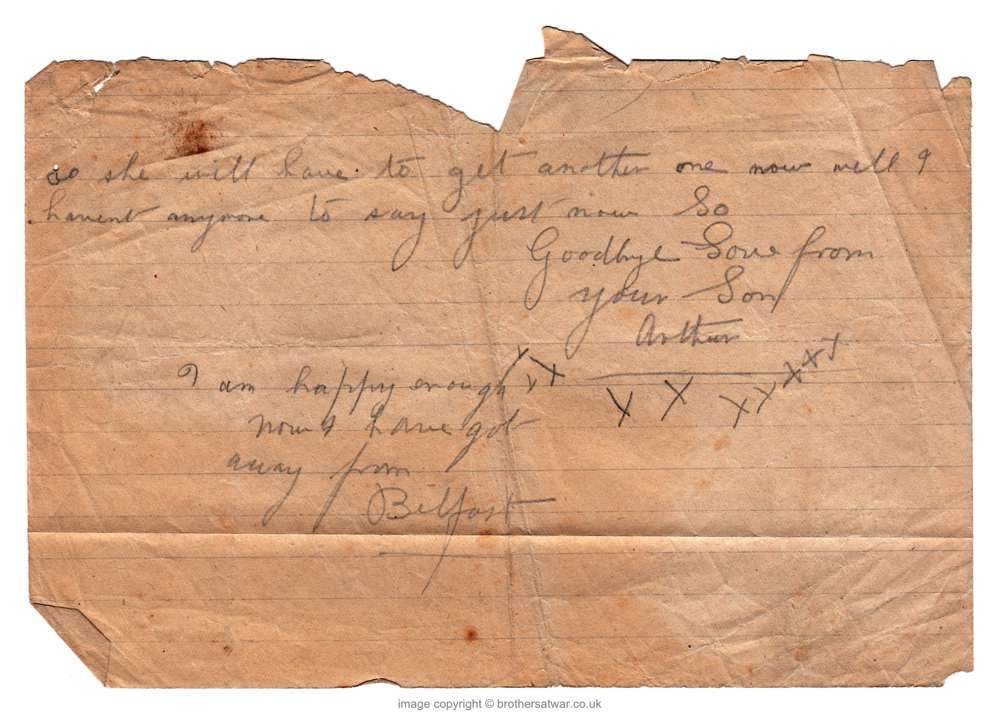 so she will have to get another one now well I
havent anymore to say just now So
Goodbye Love from
your Son
Arthur
X X X X X X X X X X
I am happy enough
now I have got
away from
Bellfast
image copyright © brothersatwar.co.uk